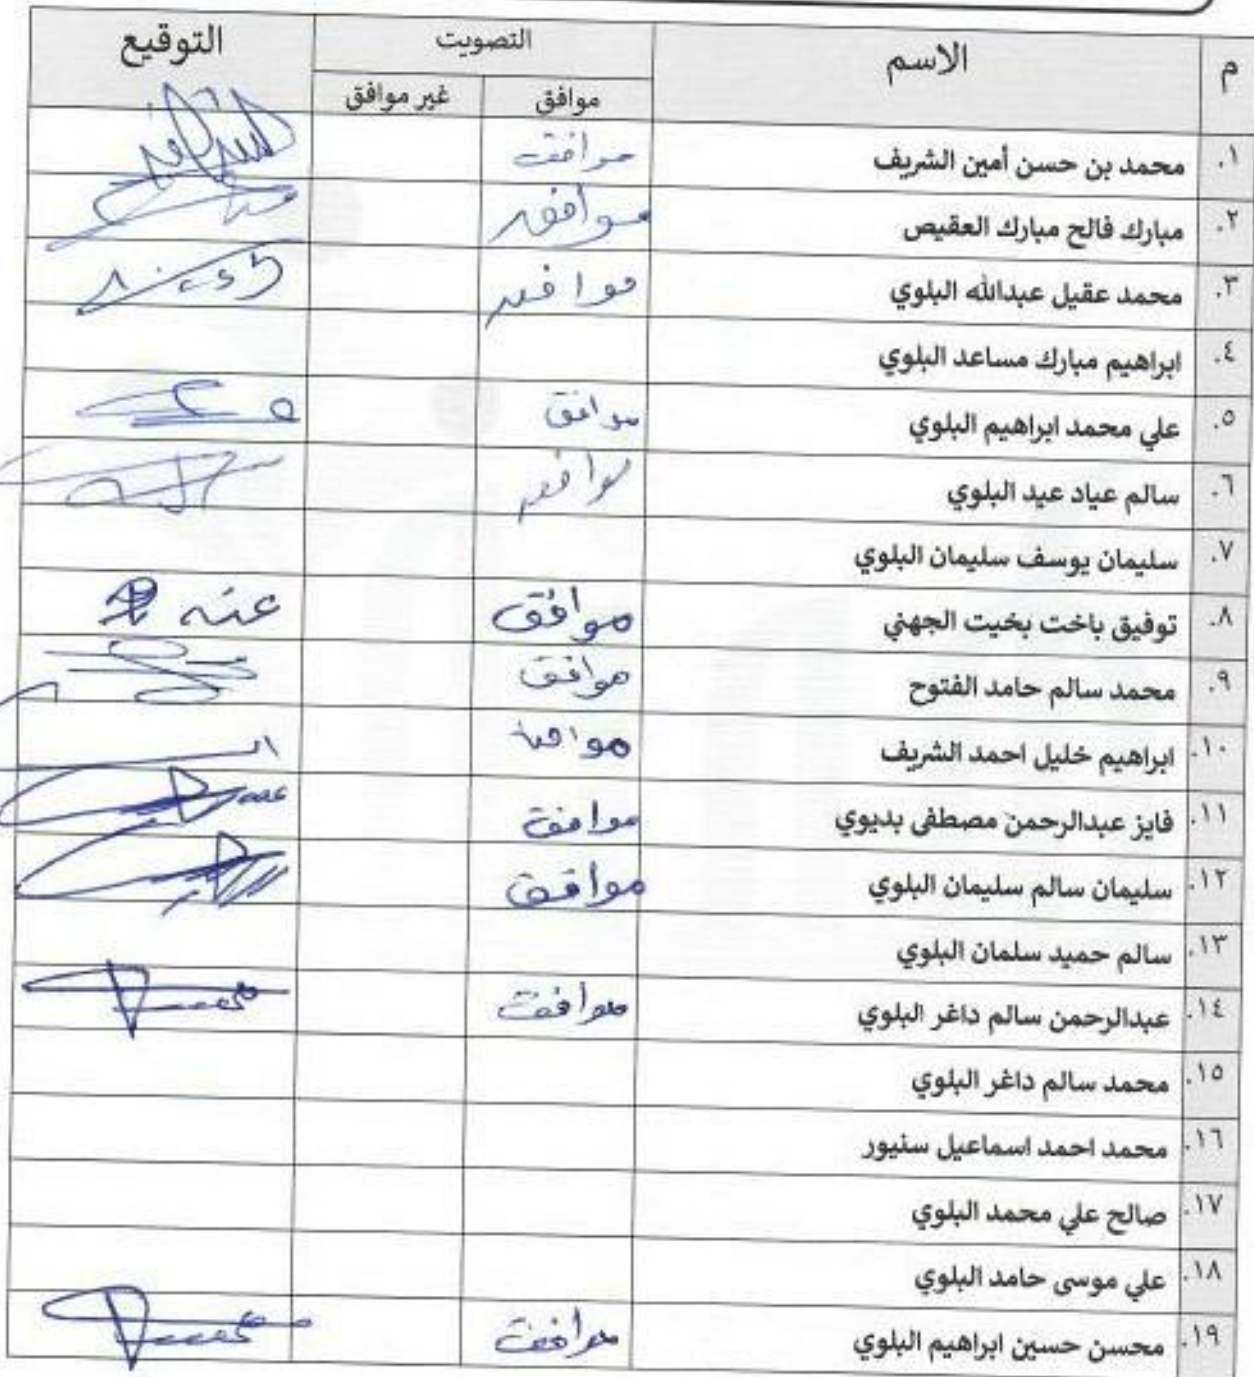 م الاسم التصويت التوقيع
موافق غير موافق
.١ محمد بن حسن أمين الشريف موافق
.٢ مبارك فالح مبارك العقيص موافق
.٣ محمد عقيل عبدالله البلوي موافق
.٤ ابراهيم مبارك مساعد البلوي
.٥ علي محمد ابراهيم البلوي موافق
.٦ سالم عياد عيد البلوي موافق
.٧ سليمان يوسف سليمان البلوي
.٨ توفيق باخت بخيت الجهني موافق عنه
.٩ محمد سالم حامد الفتوح موافق
.١٠ ابراهيم خليل احمد الشريف موافق
.١١ فايز عبدالرحمن مصطفى بديوي موافق
.١٢ سليمان سالم سليمان البلوي موافق
.١٣ سالم حميد سلمان البلوي
.١٤ عبدالرحمن سالم داغر البلوي موافق
.١٥ محمد سالم داغر البلوي
.١٦ محمد احمد اسماعيل سنيور
.١٧ صالح علي محمد البلوي
.١٨ علي موسى حامد البلوي
.١٩ محسن حسين ابراهيم البلوي موافق